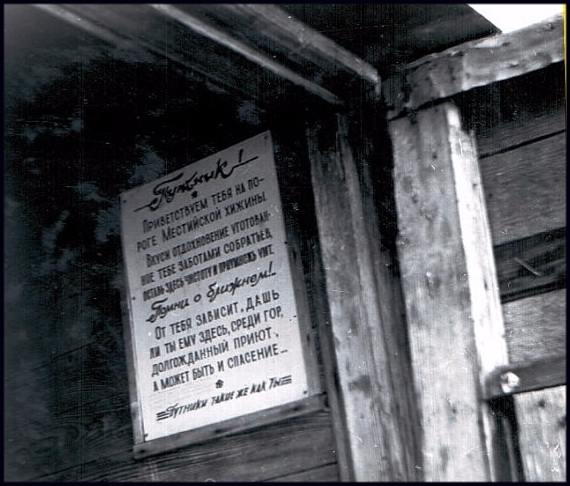 Путник!
Приветствуем тебя на по-
роге Местийской хижины.
Вкуси отдохновение уготован-
ное тебе заботами собратьев,
оставь здесь чистоту и
Помни о ближнем!..
От тебя зависит, дашь
ли ты ему здесь, среди гор,
долгожданный приют,
а может быть и спасение...
Путники такие же как ты